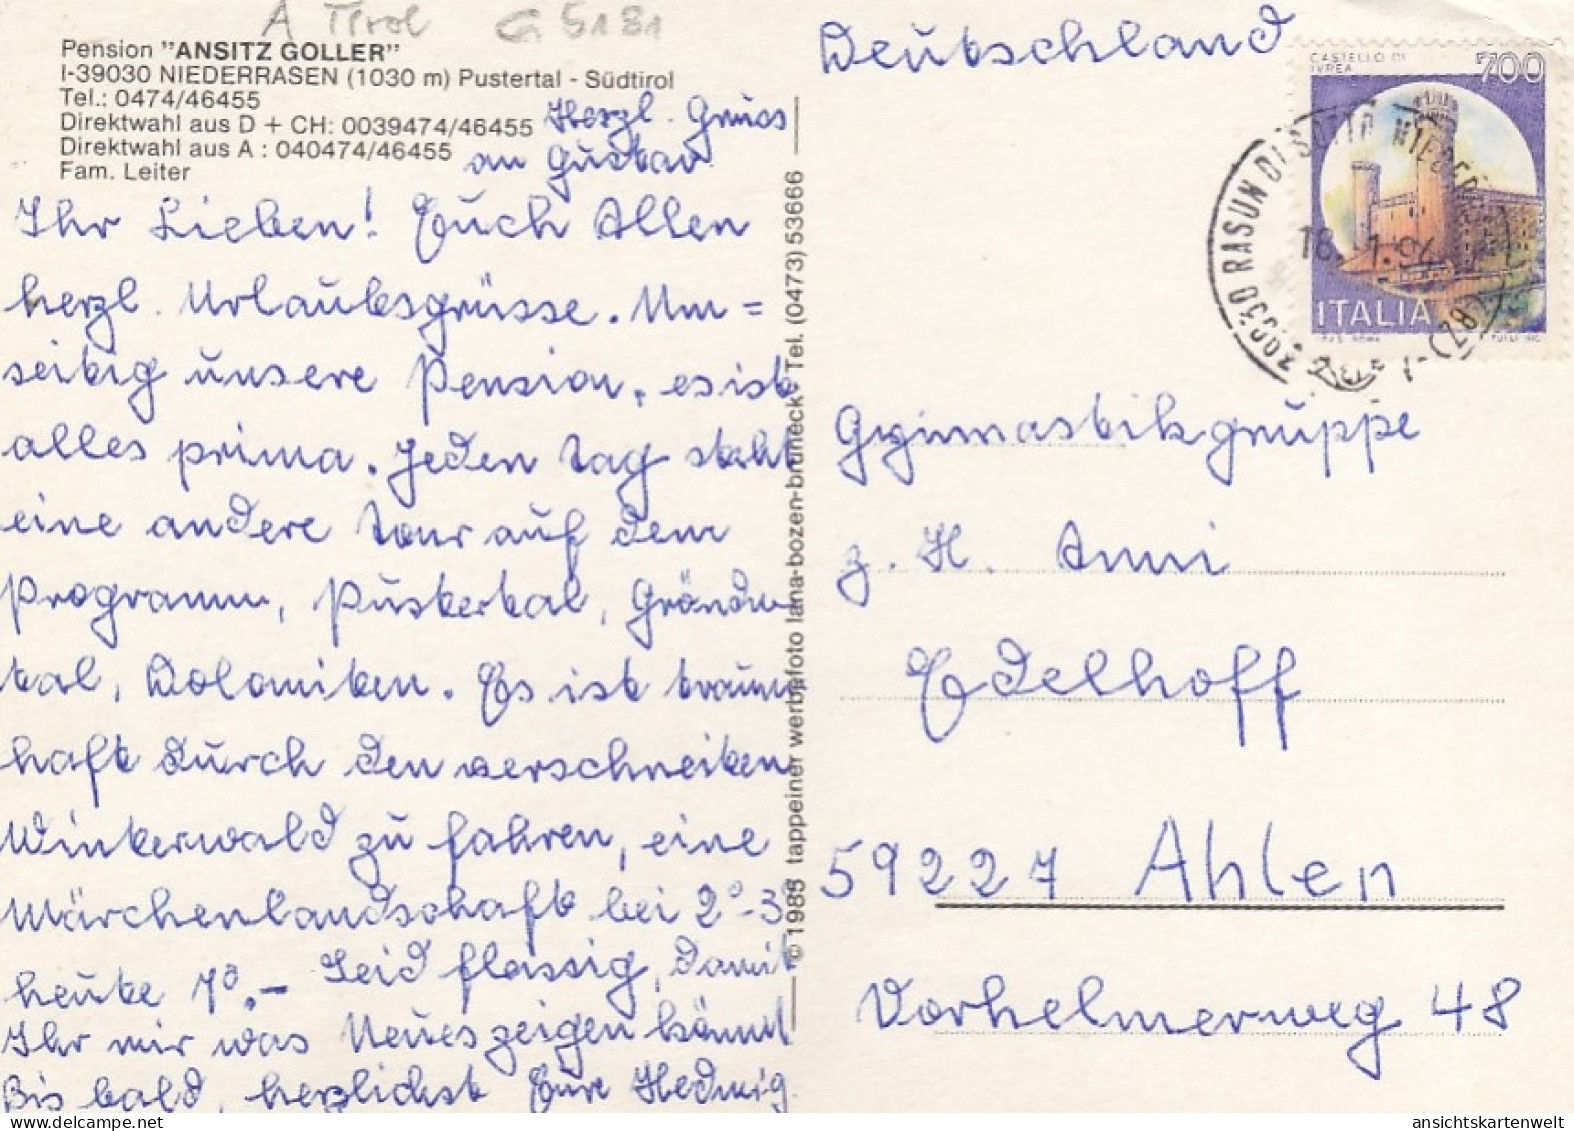 A Tirol G 5181
Pension "ANSITZ GOLLER"
I-39030 NIEDERRASEN (1030 m) Pustertal - Südtirol
Tel.: 0474/46455
Direktwahl aus D + CH: 0039474/46455
Direktwahl aus A : 040474/46455
Fam. Leiter
Herzl. Gruss
an Gustav
Ihr Lieben! Euch Allen
herzl. Urlaubsgrüsse. Um=
seitig unsere Pension, es ist
alles prima. Jeden Tag steht
eine andere Tour auf dem
Programm, Pustertal,
tal, Dolomiten. Es ist traum
haft durch den verschneiten
Winterwald zu fahren, eine
Märchenlandschaft bei 2°-3°
heute 7°.- Seid flassig, damit
Ihr mir was Neues zeigen könnt
Bis bald, herzlichst Eure Hedwig
© 1985 tappeiner werbefoto lana-bozen-bruneck - Tel. (0473) 53666
Deutschland
CASTELLO DI
IVREA
700
ITALIA
39030 RASUN DI SOTTO NIEDER
18. 1. 94
(BZ)
Gymnastikgruppe
z. H. Anni
Edelhoff
59227 Ahlen
Vorhelmerweg 48
ansichtskartenwelt